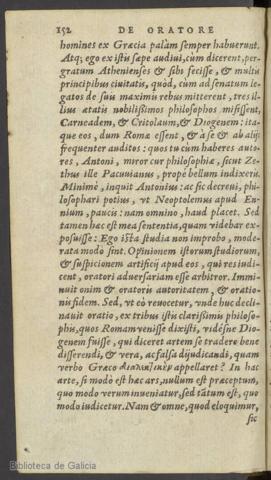 152 DE ORATORE
homines ex Græcia palàm semper habuerunt.
Atq; ego ex istis sæpe audiui, cùm dicerent, per-
gratum Athenienses & sibi fecisse, & multis
principibus ciuitatis, quòd, cùm ad senatum le-
gatos de suis maximis rebus mitterent, tres il-
lius ætatis nobilissimos philosophos misissent,
Carneadem, & Critolaum, & Diogenem: ita-
que eos, dum Romæ essent, & à se & ab alijs
frequenter auditos: quos tu cùm haberes auto-
res, Antoni, miror cur philosophiæ, sicut Ze-
thus ille Pacuuianus, prope bellum indixeris.
Minimè, inquit Antonius: ac sic decreui, phi-
losophari potius, vt Neoptolemus apud En-
nium, paucis: nam omnino, haud placet. Sed
tamen hæc est mea sententia, quam videbar ex-
posuisse: Ego ista studia non improbo, mode-
rata modò sint. Opinionem istorum studiorum,
& suspicionem artificij apud eos, qui res iudi-
cent, oratori aduersariam esse arbitror. Immi-
nuit enim & oratoris autoritatem, & oratio-
nis fidem. Sed, vt eò reuocetur, vnde huc decli-
nauit oratio, ex tribus istis clarissimis philoso-
phis, quos Romam venisse dixisti, vidésne Dio-
genem fuisse, qui diceret artem se tradere bene
disserendi, & vera, ac falsa dijudicandi, quam
verbo Græco διαλεκτικὴν appellaret? In hac
arte, si modò est hæc ars, nullum est præceptum,
quo modo verum inueniatur, sed tātum est, quo
modo iudicetur. Nam & omne, quod eloquimur,
sic
Biblioteca de Galicia